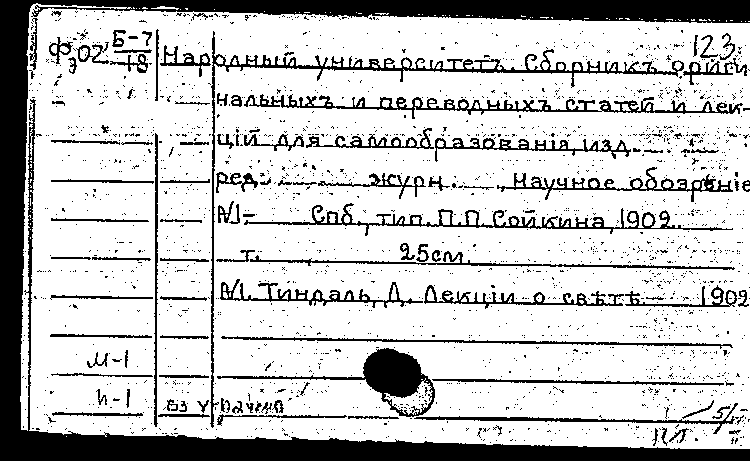 123
Фэ02 Б-7/18 Народный университетъ. Сборникъ ориги-
нальныхъ и переводныхъ статей и лек-
цій для самообразованія, изд.
ред. журн. „Научное обозрѣніе
№1- Спб., тип. П.П. Сойкина, 1902.
т. 25см.
№1. Тиндаль, Д. Лекціи о свѣтѣ 1902
М-1
И-1